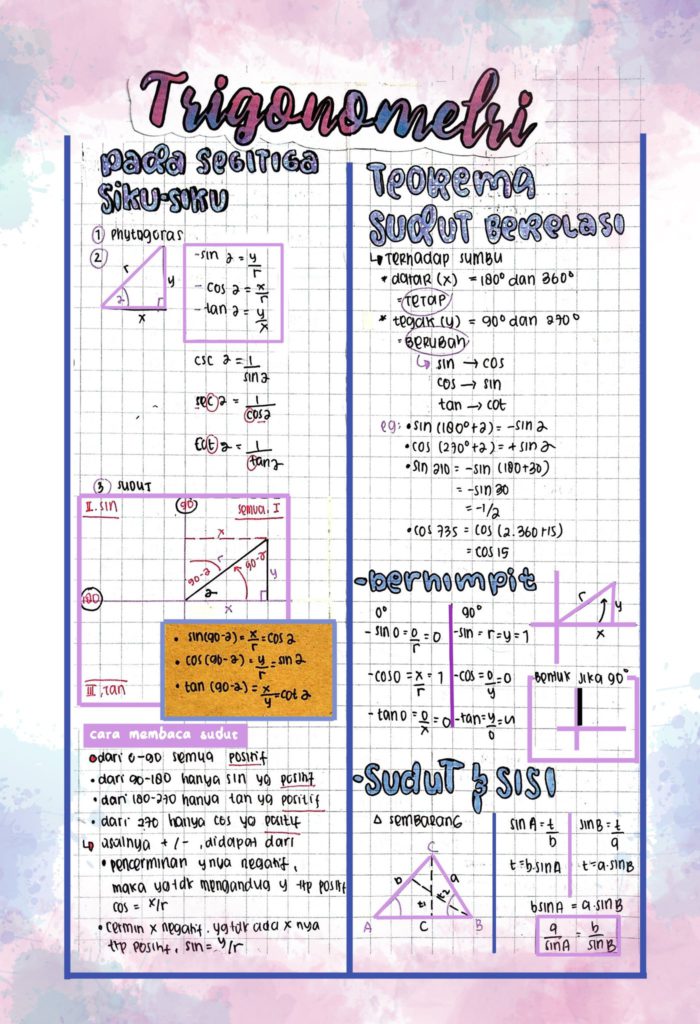 Trigonometri
pada SEGITIGA
SIKU-SIKU
① Phytogoras
②
r
y
2
x
-sin 2 = y/r
- cos 2 = x/r
- tan 2 = y/x
csc 2 = 1/sin2
sec 2 = 1/cos2
Cot 2 = 1/tan2
③ sudut
II. sin
90
semua. I
x
90-2
r
90-2
y
2
x
180
III. tan
• sin(90-2) = x/r = cos 2
• cos (90-2) = y/r = sin 2
• tan (90-2) = x/y = cot 2
cara membaca sudut
• dari 0-90 semua positif
• dari 90-180 hanya sin yg positif
• dari 180-270 hanya tan yg positif
• dari 270 hanya cos yg positif
↳ asalnya +/-, didapat dari
• pencerminan ynya negatif,
maka yg tdk mengandug y ttp positif
cos = x/r
• cermin x negatif. yg tdk ada x nya
ttp positif, sin = y/r
TEOREMA
SUDUT BERELASI
↳ TERHADAP SUMBU
* datar (x) = 180° dan 360°
= TETAP
* tegak (y) = 90° dan 270°
= BERUBAH
↳ sin → cos
cos → sin
tan → cot
eg: • sin (180°+2) = -sin 2
• cos (270°+2) = + sin 2
• sin 210 = -sin (180+30)
= -sin 30
= -1/2
• cos 735 = cos (2.360+15)
= cos 15
-berhimpit
0°
- sin 0 = 0/r = 0
- cos 0 = x/r = 1
- tan 0 = 0/x = 0
90°
-sin = r = y = 1
-cos = 0/y = 0
-tan = y/0 = ∽
r
y
x
Bentuk jika 90°
-Sudut & SISI
Δ sembarang
C
b
a
t
A
C
B
sin A = t/b
t = b.sinA
sin B = t/a
t = a.sinB
b sinA = a.sinB
a/sinA = b/sinB